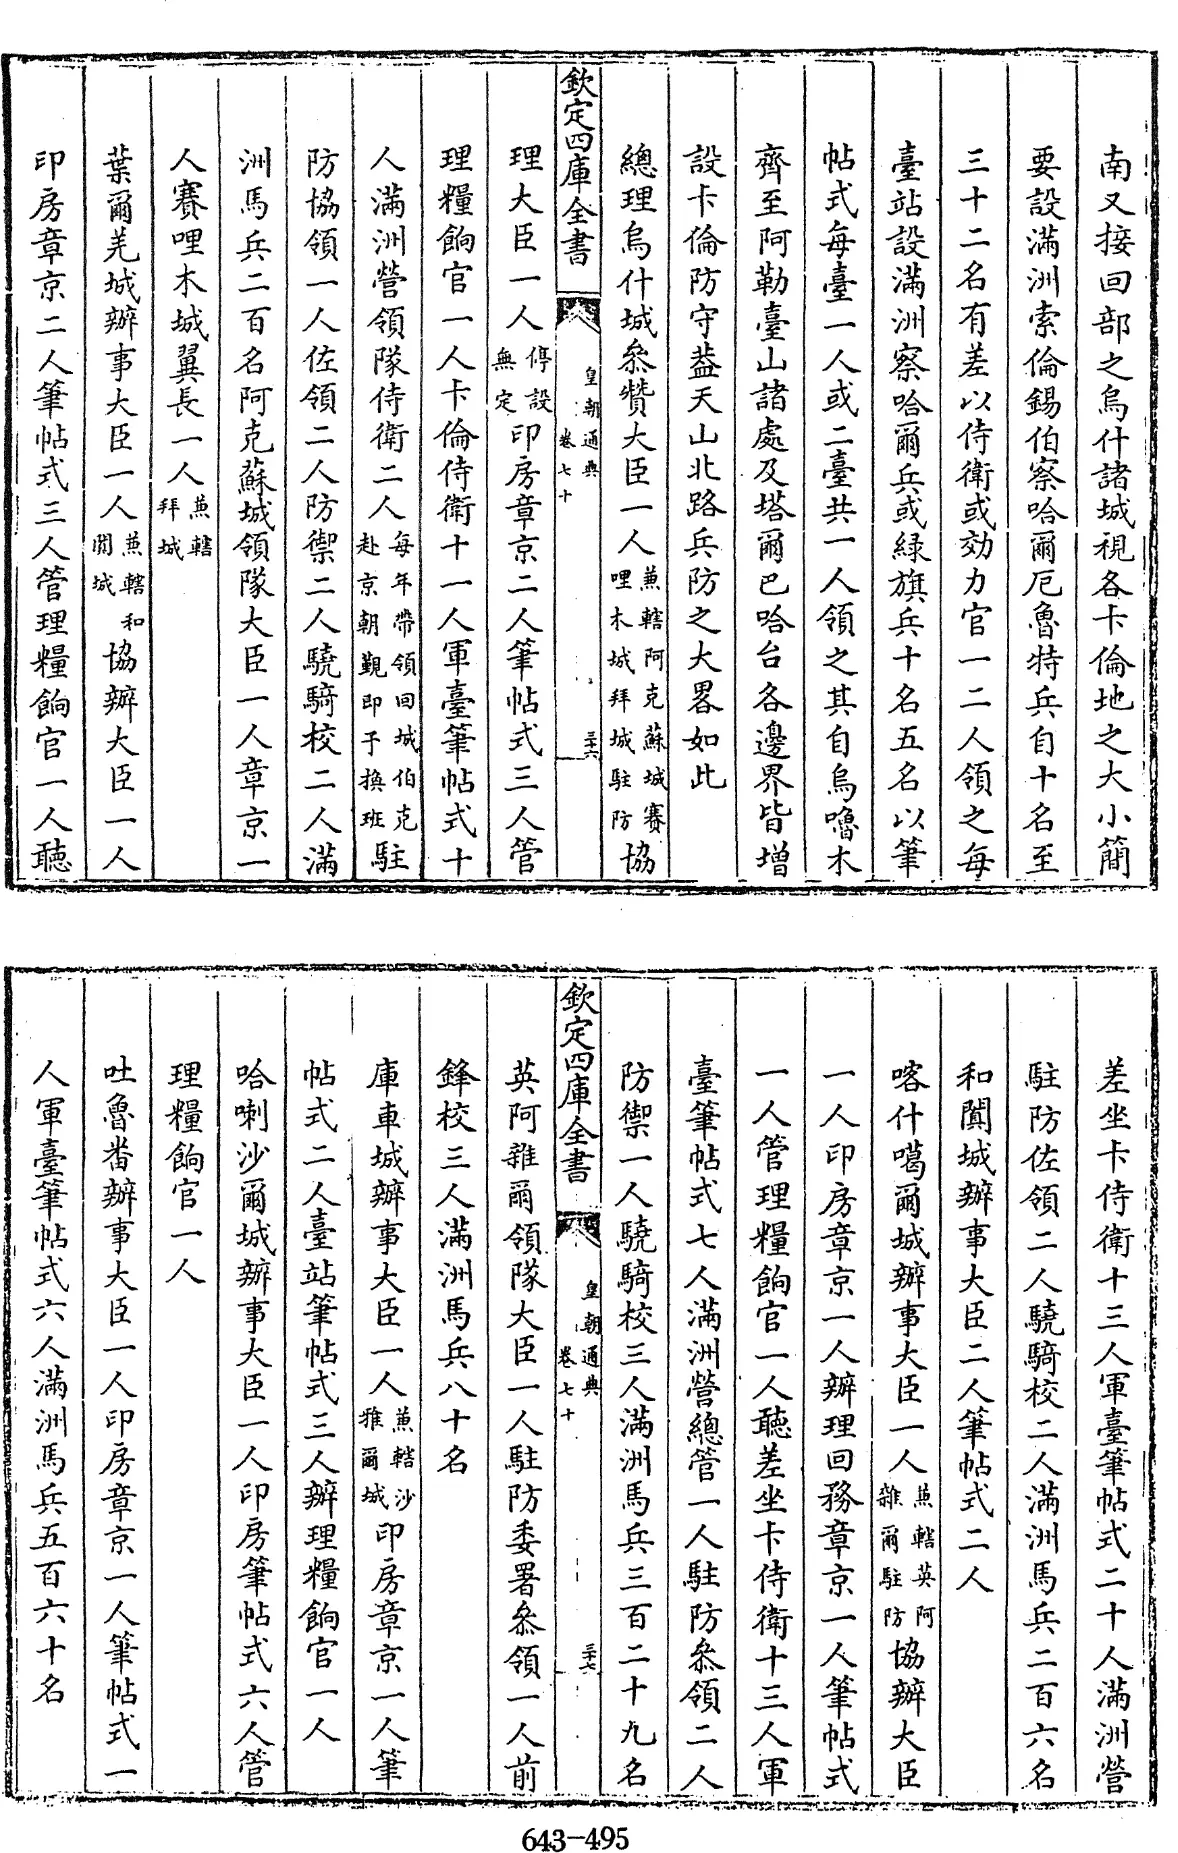 南又接回部之烏什諸城視各卡倫地之大小簡
要設滿洲索倫錫伯察哈爾厄魯特兵自十名至
三十二名有差以侍衛或効力官一二人領之每
臺站設滿洲察哈爾兵或緑旗兵十名五名以筆
帖式每臺一人或二臺共一人領之其自烏嚕木
齊至阿勒臺山諸處及塔爾巴哈台各邊界皆增
設卡倫防守葢天山北路兵防之大畧如此
總理烏什城叅贊大臣一人兼轄阿克蘇城賽哩木城拜城駐防協
欽定四庫全書 皇朝通典 卷七十 三十六
理大臣一人停設無定印房章京二人筆帖式三人管
理糧餉官一人卡倫侍衛十一人軍臺筆帖式十
人滿洲營領隊侍衛二人每年帶領回城伯克赴京朝覲即于換班駐
防協領一人佐領二人防禦二人驍騎校二人滿
洲馬兵二百名阿克蘇城領隊大臣一人章京一
人賽哩木城翼長一人兼轄拜城
葉爾羌城辦事大臣一人兼轄和闐城協辦大臣一人
印房章京二人筆帖式三人管理糧餉官一人聽
差坐卡侍衛十三人軍臺筆帖式二十人滿洲營
駐防佐領二人驍騎校二人滿洲馬兵二百六名
和闐城辦事大臣二人筆帖式二人
喀什噶爾城辦事大臣一人兼轄英阿雜爾駐防協辦大臣
一人印房章京一人辦理回務章京一人筆帖式
一人管理糧餉官一人聽差坐卡侍衛十三人軍
臺筆帖式七人滿洲營總管一人駐防叅領二人
防禦一人驍騎校三人滿洲馬兵三百二十九名
欽定四庫全書 皇朝通典 卷七十 三十七
英阿雜爾領隊大臣一人駐防委署叅領一人前
鋒校三人滿洲馬兵八十名
庫車城辦事大臣一人兼轄沙雅爾城印房章京一人筆
帖式二人臺站筆帖式三人辦理糧餉官一人
哈喇沙爾城辦事大臣一人印房筆帖式六人管
理糧餉官一人
吐魯番辦事大臣一人印房章京一人筆帖式一
人軍臺筆帖式六人滿洲馬兵五百六十名
643-495